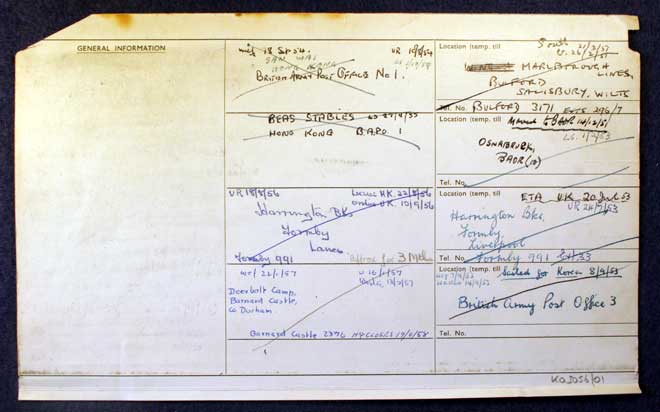 GENERAL INFORMATION
18 Sp 54.
UR
SAN WAI
HONG KONG
BRITISH ARMY POST OFFICE No 1.
BEAS STABLES
HONG KONG B.A.P.O. 1
UR 18/8/56
Leave H.K. 22/8/56
UR 12/9/56
Harrington Bks
Formby
Lancs
Formby 991
for 3 Mths
wef 22/1/57
Deerbolt Camp,
Barnard Castle,
Co Durham.
Barnard Castle 2376
Location (temp. till
South
MARLBOROUGH
LINES,
BULFORD
SALISBURY, WILTS
Tel. No. BULFORD 3171 EXTS 296/7
Location (temp. till Moved to BAOR
OSNABRUCK,
BAOR
Tel. No.
Location (temp. till ETA UK 20 Jul 53
UR 24/7/53
Harrington Bks,
Formby,
Liverpool
Tel. No. Formby 991
Location (temp. till Sailed for Korea 8/9/53
British Army Post Office 3
Tel. No.
KOJ056/01